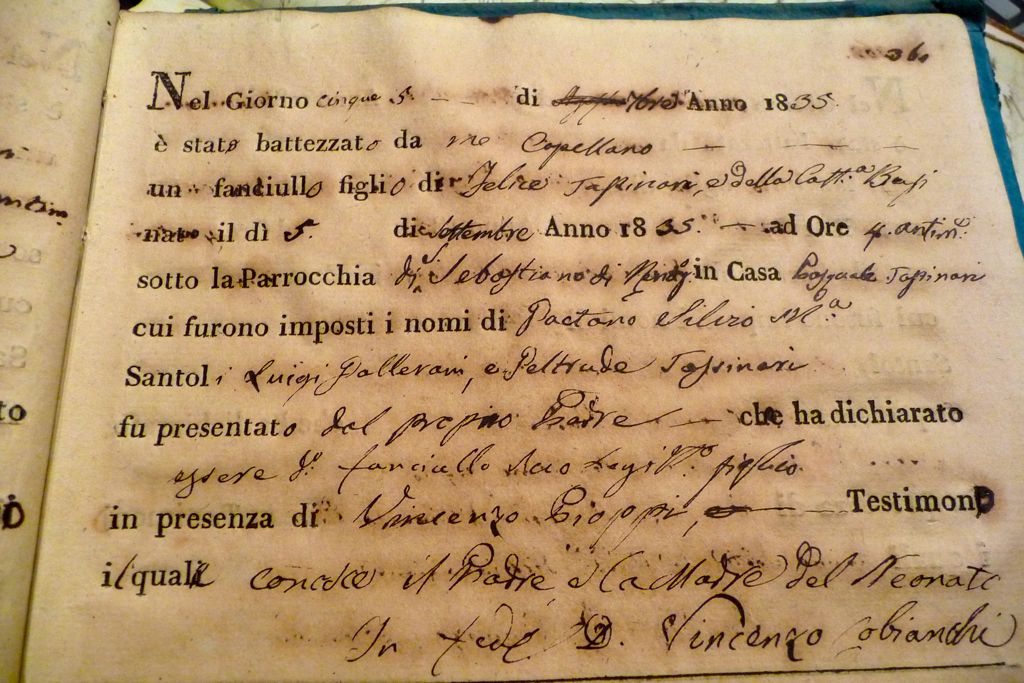 36
Nel Giorno cinque 5. — di 7bre Anno 1835.
è stato battezzato da me Capellano
un fanciullo figlio di Felice Tassinari, e della Catt.a Basi
nato il dì 5. di Settembre Anno 1835. — ad Ore 4. antim.
sotto la Parrocchia di S. Sebastiano di in Casa Pasquale Tassinari
cui furono imposti i nomi di Gaetano Silvio M.a
Santoli Luigi Palleroni, e Geltrude Tassinari
fu presentato dal proprio Padre — che ha dichiarato
essere d.o fanciullo suo legit.mo figlio.
in presenza di Vincenzo Pioppi, Testimonio
il quale conosce il Padre e la Madre del Neonato
In fede D. Vincenzo Cobianchi